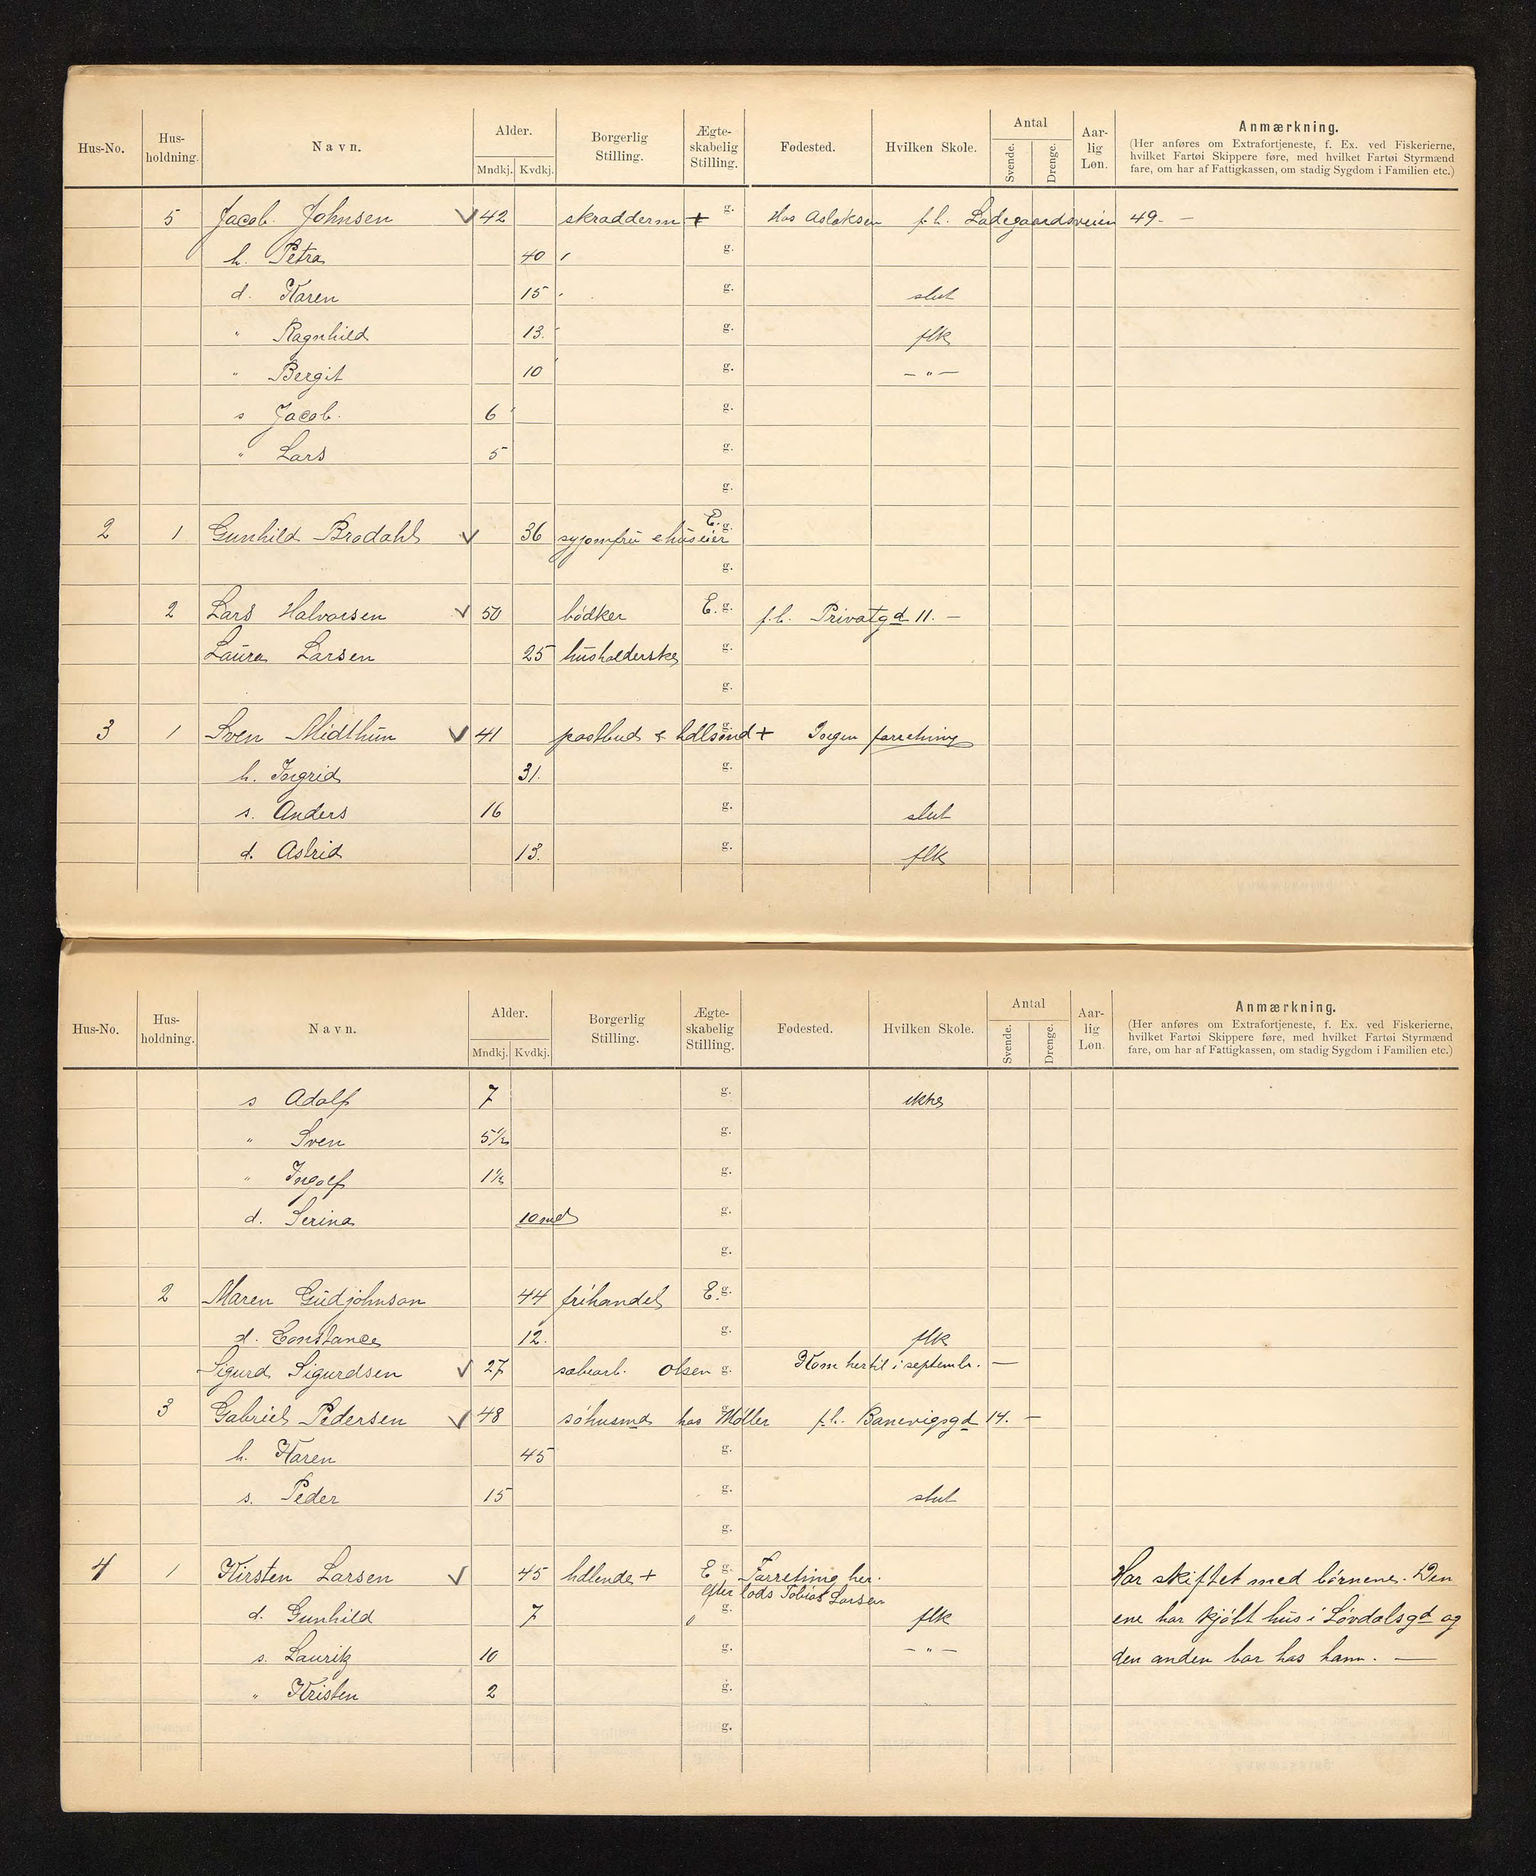 Hus-No. Hus-holdning. Navn. Alder. Mndkj. Kvdkj. Borgerlig Stilling. Ægte-skabelig Stilling. Fødested. Hvilken Skole. Antal Svende. Drenge. Aar-lig Løn. Anmærkning.
(Her anføres om Extrafortjeneste, f. Ex. ved Fiskerierne, hvilket Fartøi Skippere føre, med hvilket Fartøi Styrmænd fare, om har af Fattigkassen, om stadig Sygdom i Familien etc.)
5 Jacob Johnsen 42 skradderm + g. Hos Aslaksen f.h. Ladegaardsveien 49. —
h. Petra 40 g.
d. Karen 15 g. slut
" Ragnhild 13. g. flk
" Bergit 10 g. — " —
s Jacob. 6 g.
" Lars 5 g.
g.
2 1 Gunhild Brodahl 36 syjomfru & huseier E. g.
g.
2 Lars Halvorsen 50 bødker E. g. f.h. Privatgd 11. —
Laura Larsen 25 husholderske g.
g.
3 1 Sven Midthun 41 postbud & hdlsmd + g. Ingen forretning
h. Ingrid 31. g.
s. Anders 16 g. slut
d. Astrid 13. g. flk
Hus-No. Hus-holdning. Navn. Alder. Mndkj. Kvdkj. Borgerlig Stilling. Ægte-skabelig Stilling. Fødested. Hvilken Skole. Antal Svende. Drenge. Aar-lig Løn. Anmærkning.
(Her anføres om Extrafortjeneste, f. Ex. ved Fiskerierne, hvilket Fartøi Skippere føre, med hvilket Fartøi Styrmænd fare, om har af Fattigkassen, om stadig Sygdom i Familien etc.)
s Adolf 7 g. ikke
" Sven 5½ g.
" Ingolf 1½ g.
d. Serina 10 md g.
g.
2 Maren Gudjohnson 44 frihandel E. g.
d. Constance 12. g. flk
Sigurd Sigurdsen 27 sæbearb. Olsen g. Kom hertil i septembr. —
3 Gabriel Pedersen 48 søhusmd hos Møller g. f.h. Banevigsgd 14. —
h. Karen 45 g.
s. Peder 15 g. slut
g.
4 1 Kirsten Larsen 45 hdlende + E g. Forretning her. Har skiftet med børnene. Den
efter lods Tobias Larsen
d. Gunhild 7 g. flk ene har kjøbt hus i Løvdalsgd og
s. Lauritz 10 g. — " — den anden bor hos ham. —
" Kristen 2 g.
g.